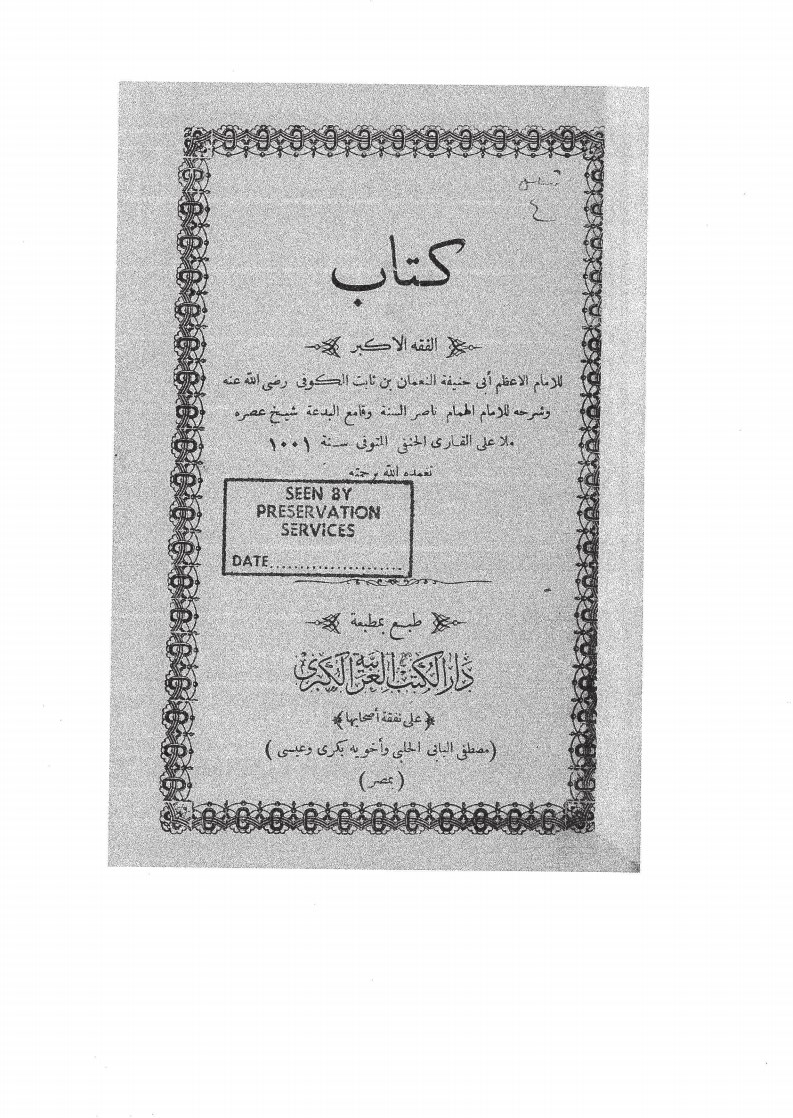 كتاب
الفقه الاكبر
للامام الاعظم أبى حنيفة النعمان بن ثابت الكوفى رضى الله عنه
وشرحه للامام الهمام ناصر السنة وقامع البدعة شيخ عصره
ملا على القارى الحنفى المتوفى سنة ١٠٠١
تغمده الله برحمته
SEEN BY
PRESERVATION
SERVICES
DATE......................
طبع بمطبعة
دَارُ الكُتُبِ العَرَبِيَّةِ الكُبْرَى
﴿على نفقة أصحابها﴾
(مصطفى البابى الحلبى وأخويه بكرى وعيسى)
(بمصر)